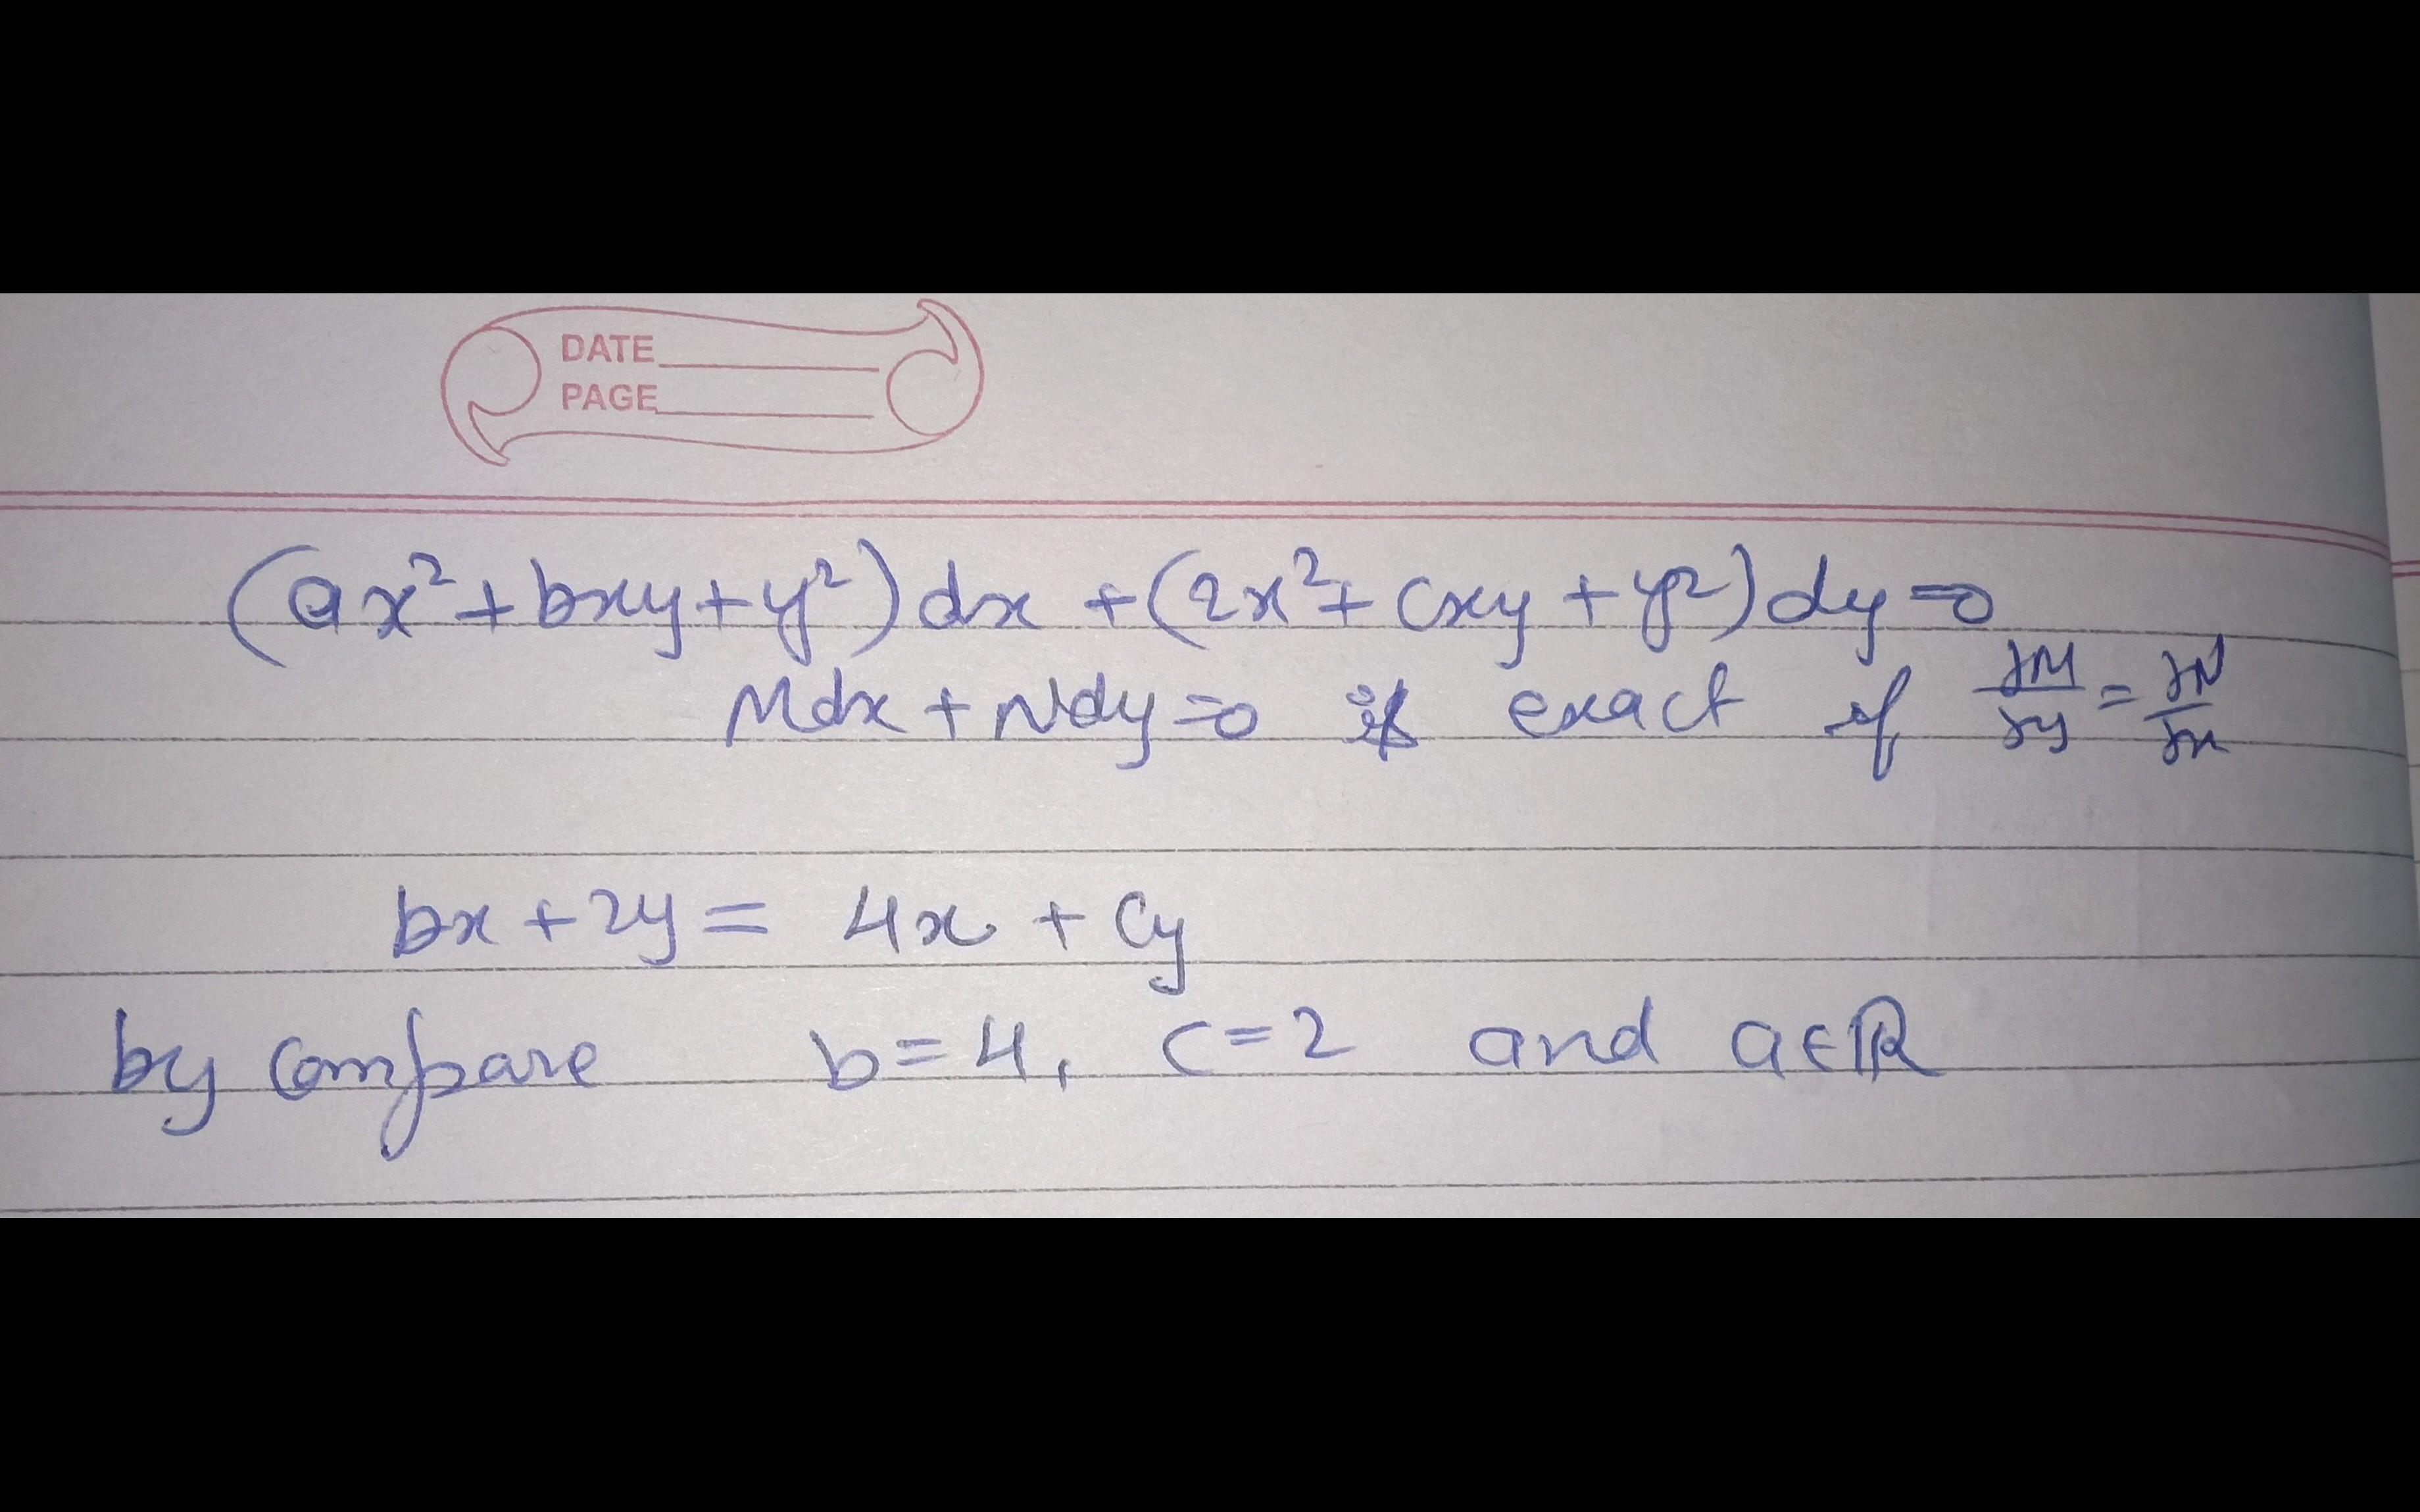 DATE
PAGE
(ax²+bxy+y²)dx+(2x²+cxy+y²)dy=0
Mdx+Ndy=0 is exact if ∂M/∂y=∂N/∂x
bx+2y=4x+cy
by compare b=4, c=2 and a∈ℝ